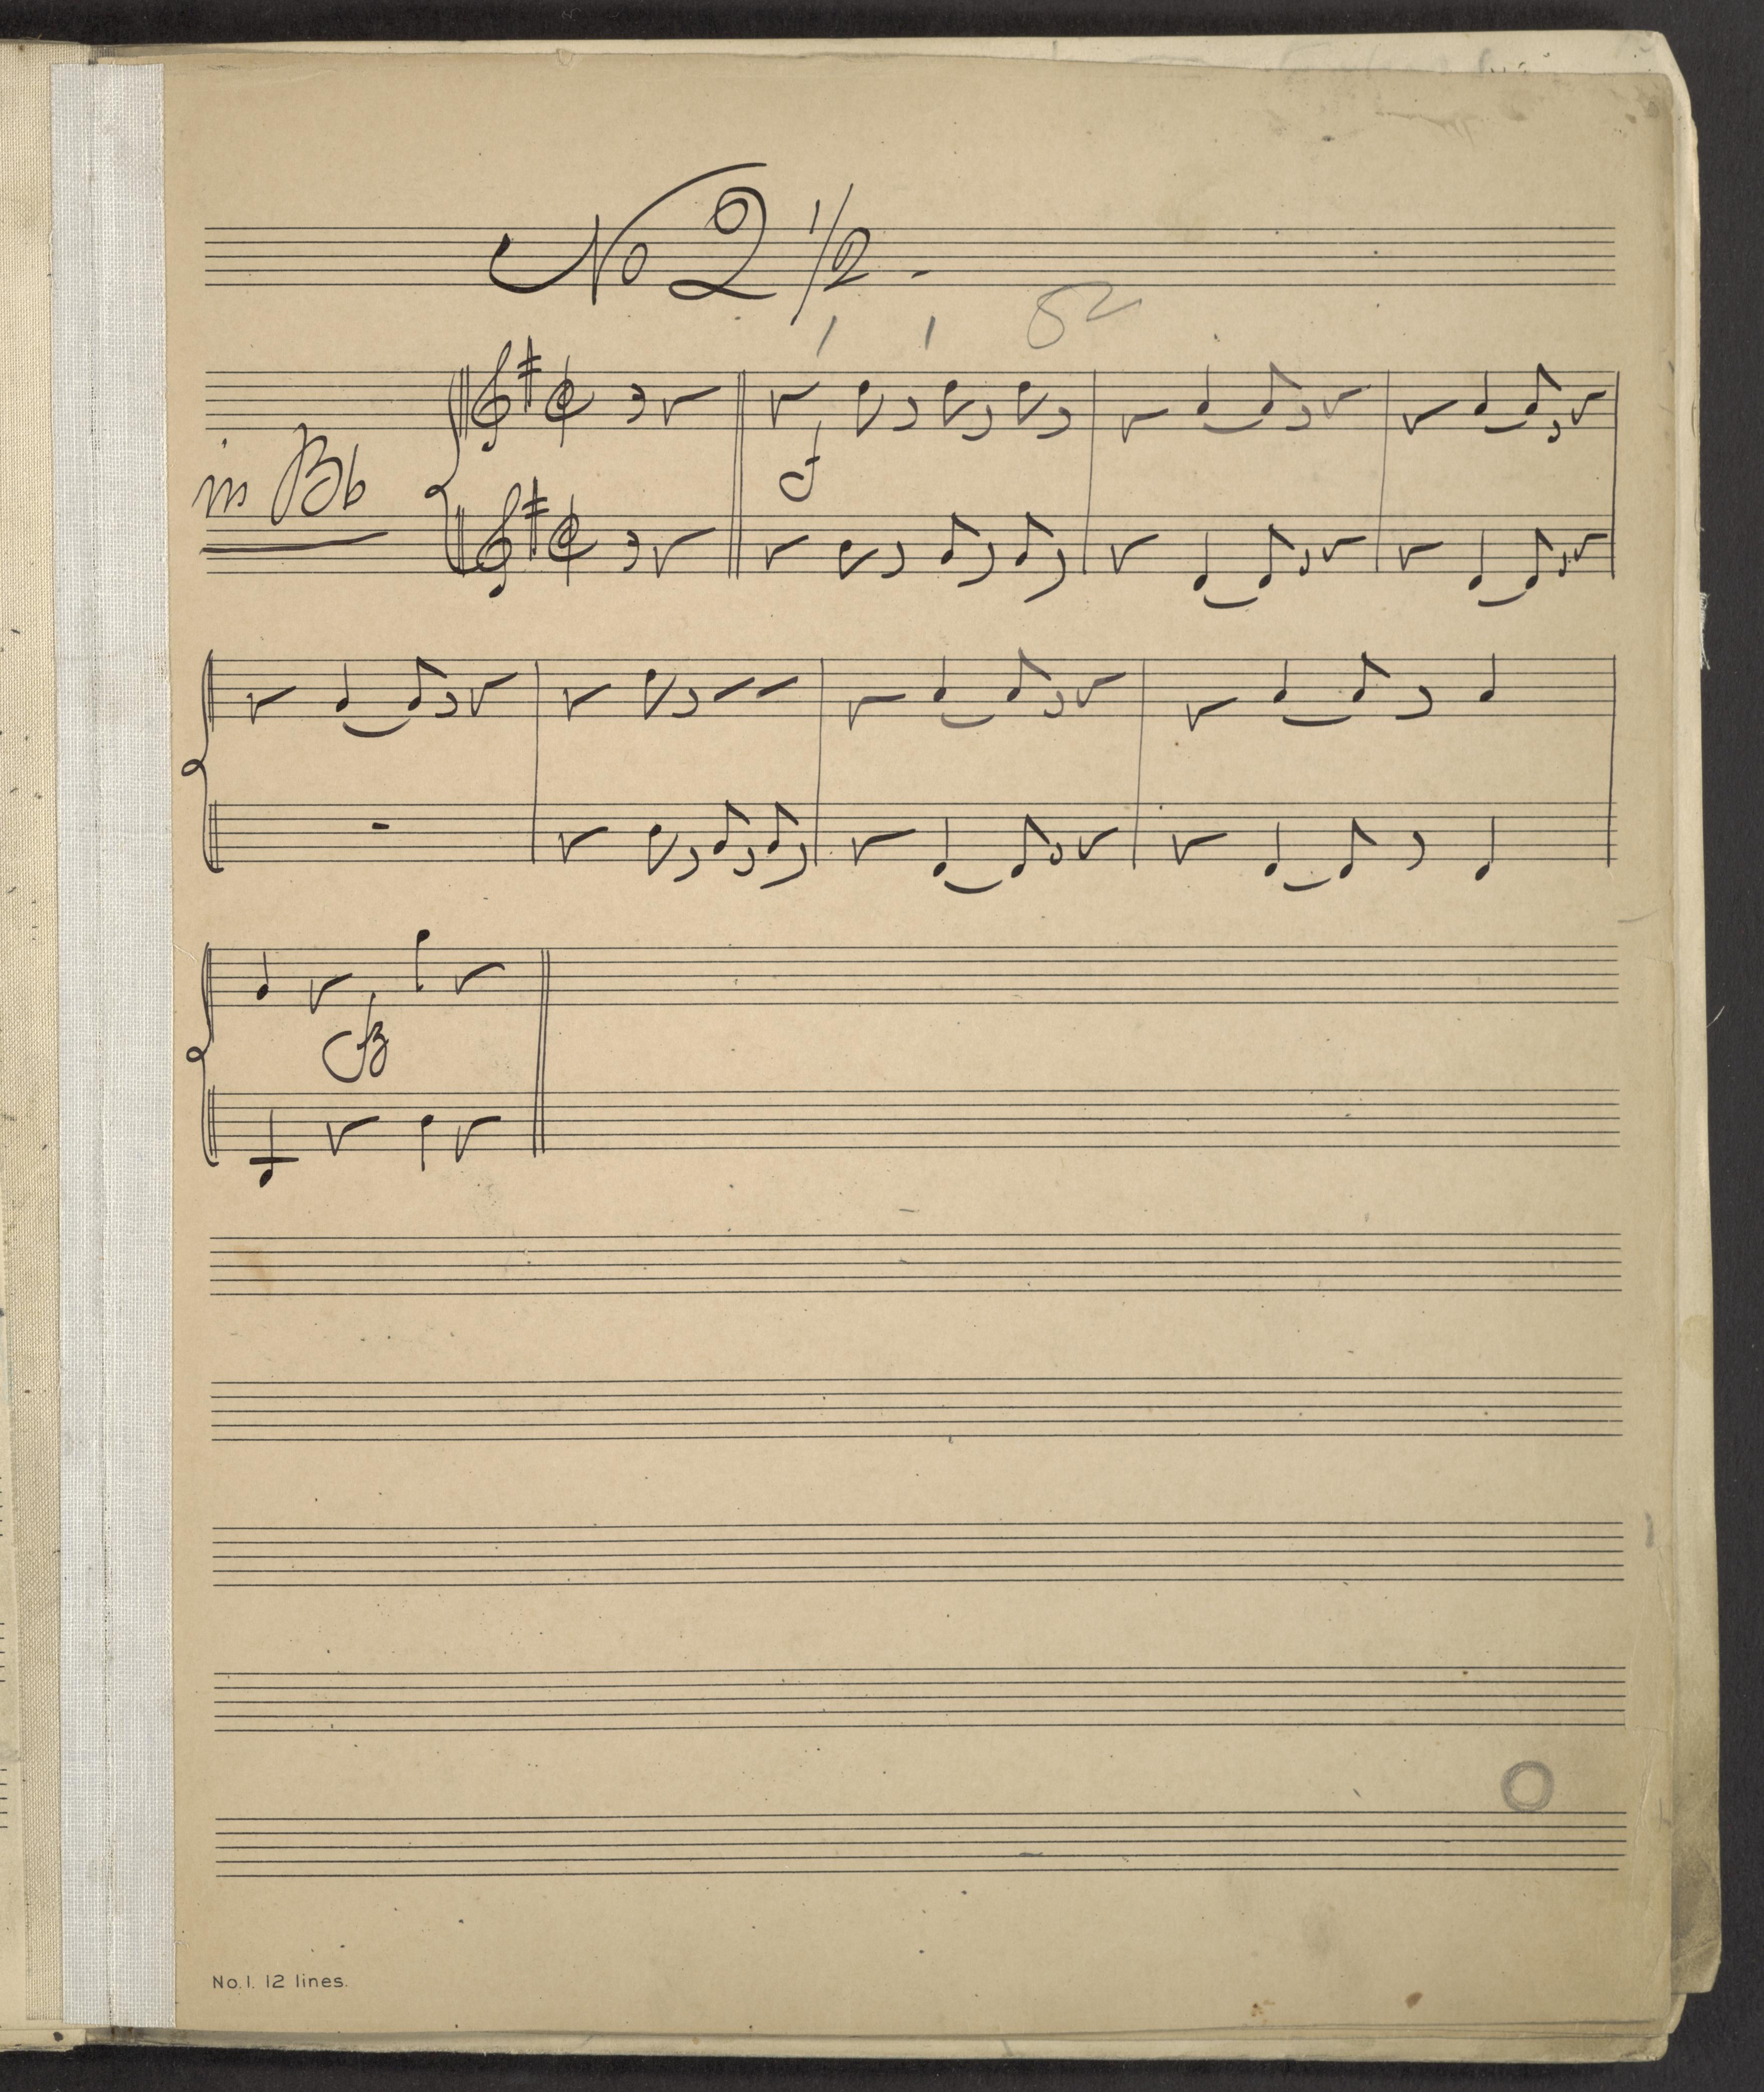 No 2 1/2 -
in Bb
f
fz
No. 1. 12 lines.